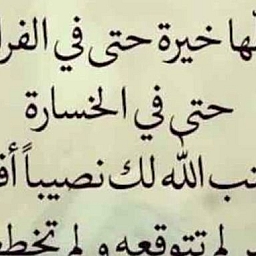 ها خيرة حتى في الفرا
حتى في الخسارة
تب الله لك نصيباً أف
لم تتوقعه و لم تخطط